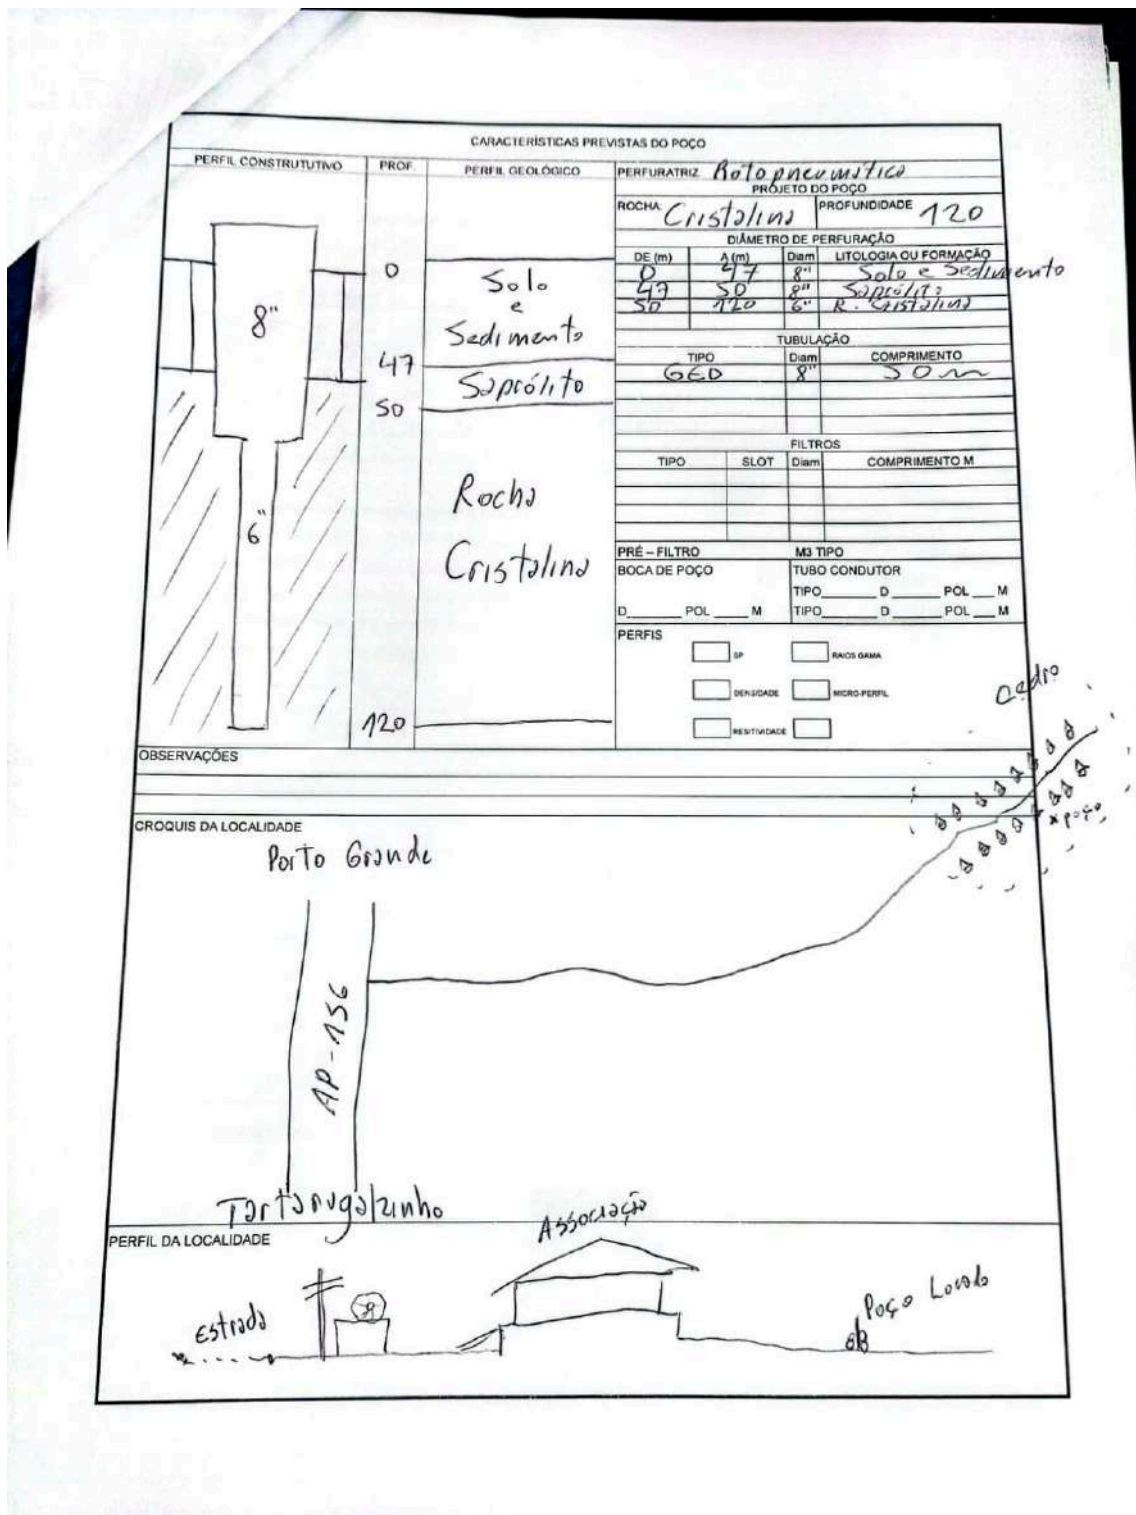 CARACTERÍSTICAS PREVISTAS DO POÇO
PERFIL CONSTRUTUTIVO
PROF.
PERFIL GEOLÓGICO
0
47
50
120
8"
6"
Solo
e
Sedimento
Saprólito
Rocha
Cristalina
PERFURATRIZ Rotopneumática
PROJETO DO POÇO
ROCHA: Cristalina PROFUNDIDADE 120
DIÂMETRO DE PERFURAÇÃO
DE (m) A (m) Diam LITOLOGIA OU FORMAÇÃO
0 47 8" Solo e Sedimento
47 50 8" Saprólito
50 120 6" R. Cristalina
TUBULAÇÃO
TIPO Diam COMPRIMENTO
GED 8" 50m
FILTROS
TIPO SLOT Diam COMPRIMENTO M
PRÉ – FILTRO M3 TIPO
BOCA DE POÇO TUBO CONDUTOR
TIPO______ D ______ POL ___ M
D______ POL ____ M TIPO______ D ______ POL ___ M
PERFIS
SP RAIOS GAMA
DENSIDADE MICRO-PERFIL
RESITIVIDADE
OBSERVAÇÕES
Cedro
x poço
CROQUIS DA LOCALIDADE
Porto Grande
AP-156
Tartarugalzinho
PERFIL DA LOCALIDADE
Associação
Estrada
Poço Locado